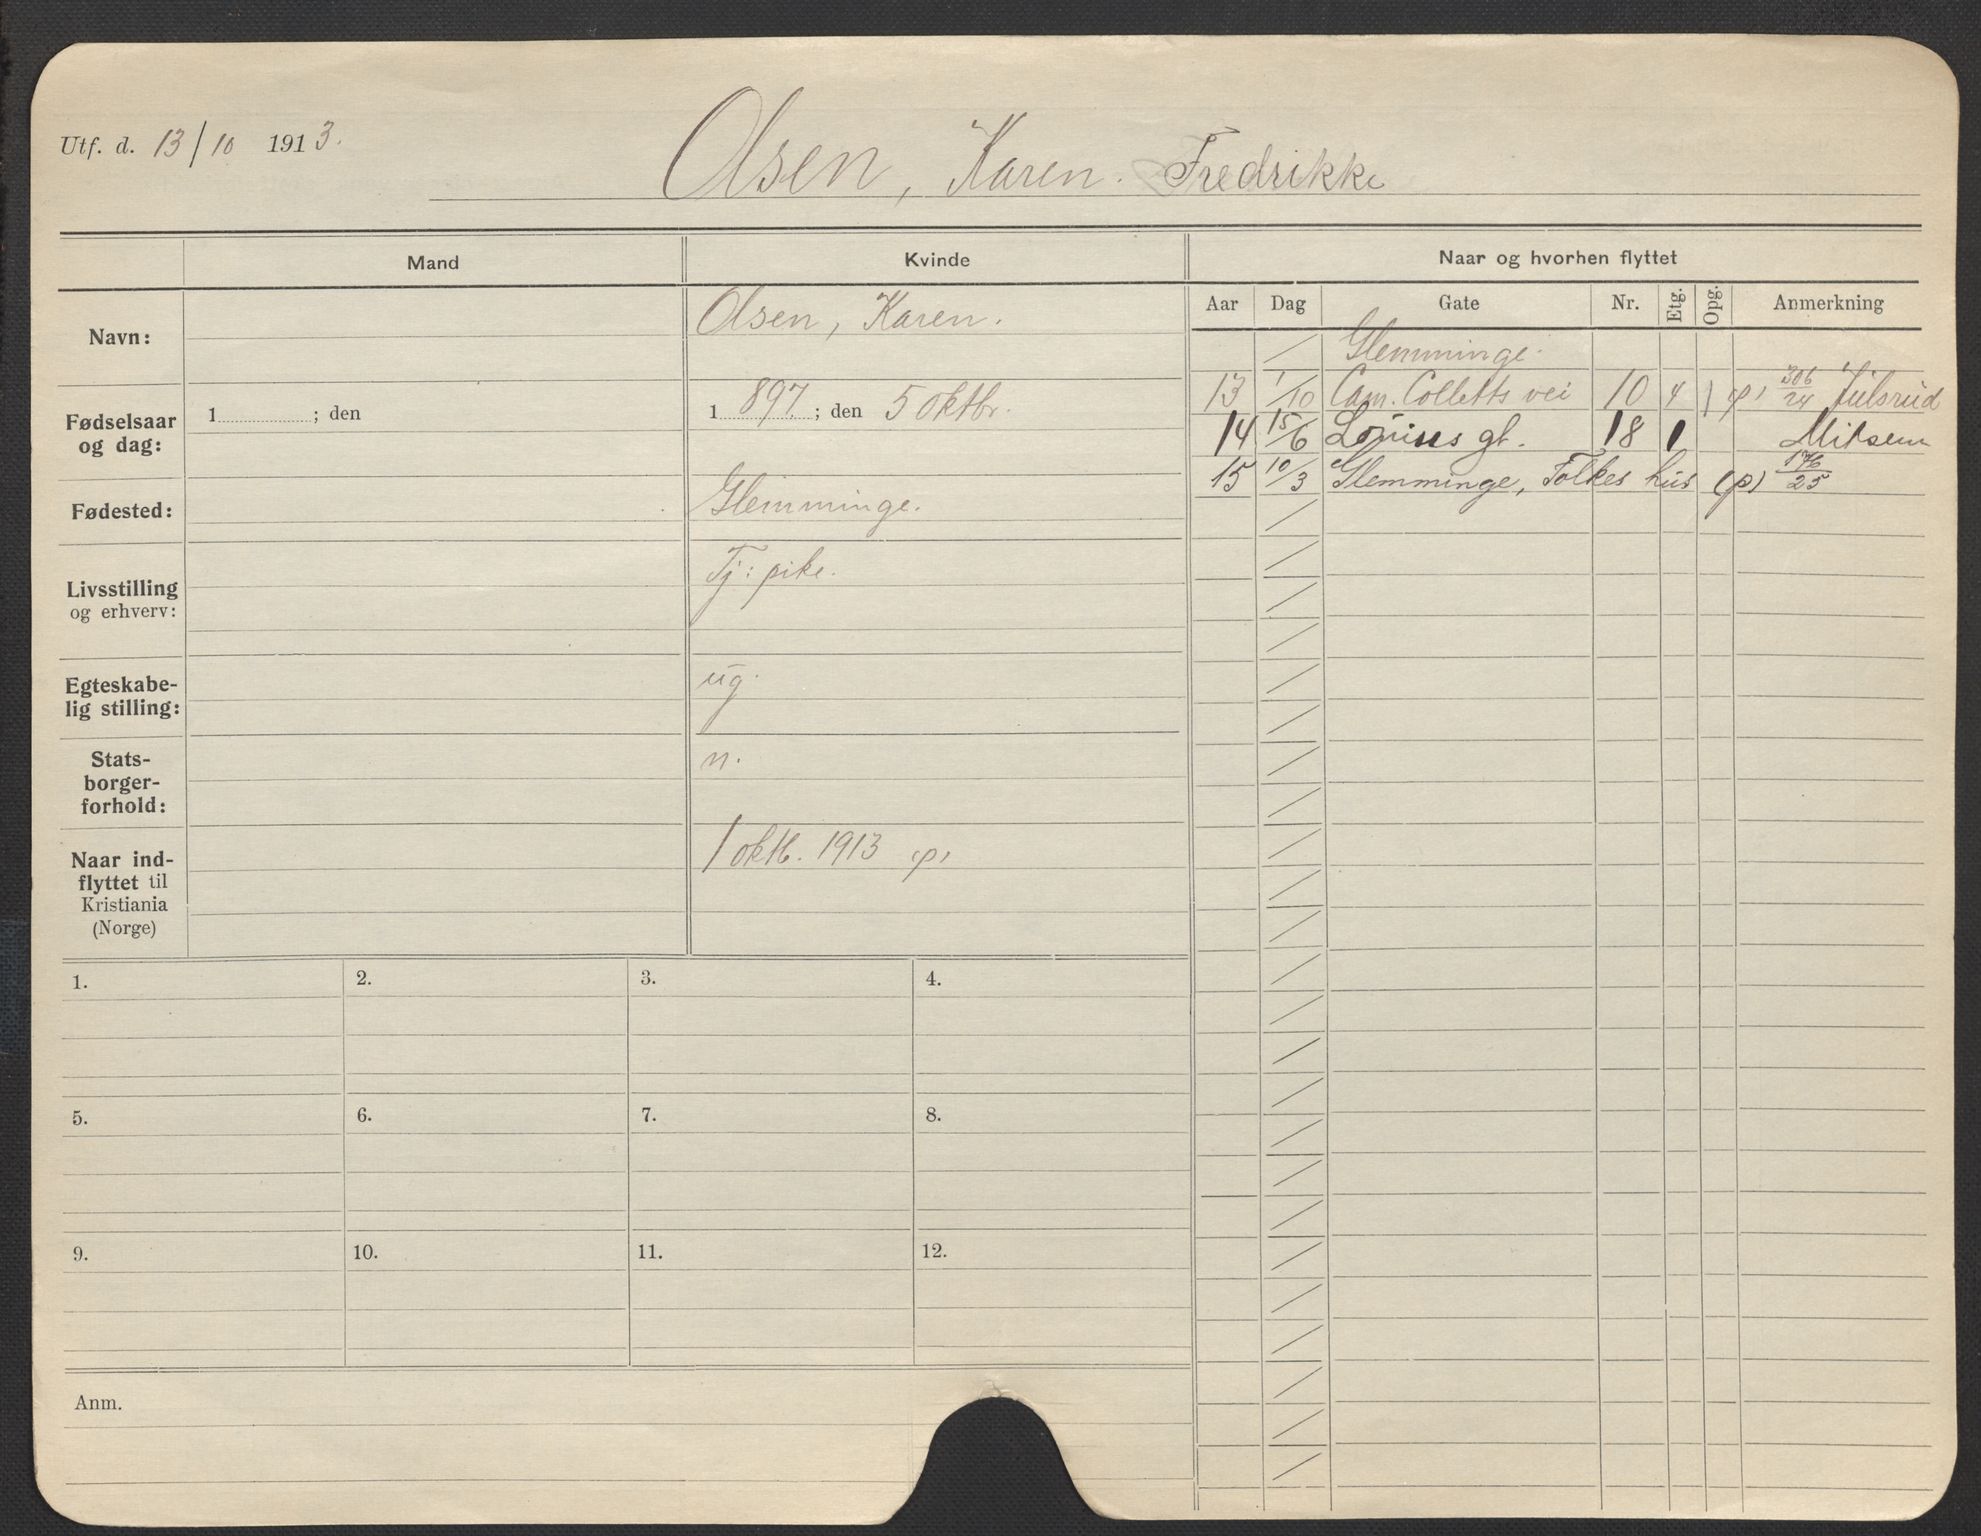 Utf. d. 13/10 1913.
Olsen, Karen. Fredrikke
Mand
Kvinde
Navn:
Olsen, Karen.
Fødselsaar og dag:
1 ; den
1 897. ; den 5 oktbr.
Fødested:
Glemminge.
Livsstilling
og erhverv:
Tj: pike.
Egteskabe-
lig stilling:
ug.
Stats-
borger-
forhold:
n.
Naar ind-
flyttet til
Kristiania
(Norge)
1 oktb. 1913 (p)
Naar og hvorhen flyttet
Aar Dag Gate Nr. Etg. Opg. Anmerkning
/ Glemminge.
13 1/10 Cam. Colletts vei 10 4 ) (p) 306/24 Julsrud
14 15/6 Louises gt. 18 1
15 10/3 Glemminge, Folkes hus (p) 176/25
1. 2. 3. 4.
5. 6. 7. 8.
9. 10. 11. 12.
Anm.